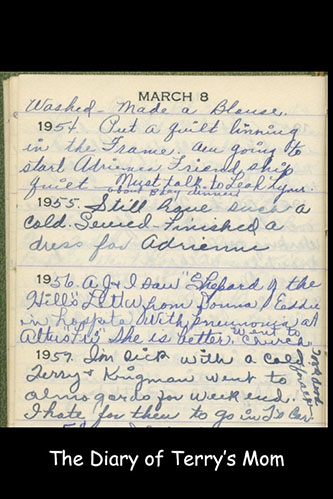 MARCH 8
Washed - Made a Blouse.
1954. Put a quilt linning
in the Frame. am going to
start Adriennes Friend ship
quilt - Must talk to Leah 1 hour.
about Okay dinner
1955. Still have such a
cold. Sewed - Finished a
dress for Adrienne
1956. A J & I saw "Shepard of the
Hills" Letter from Donna, Eddie
in hospital with pneumonia at
went to
Altus. "She is better. Church
1957. Im sick with a cold
Terry & Kingman went to
almogordo for week end.
I hate for them to go in T's Car
The Diary of Terry's Mom